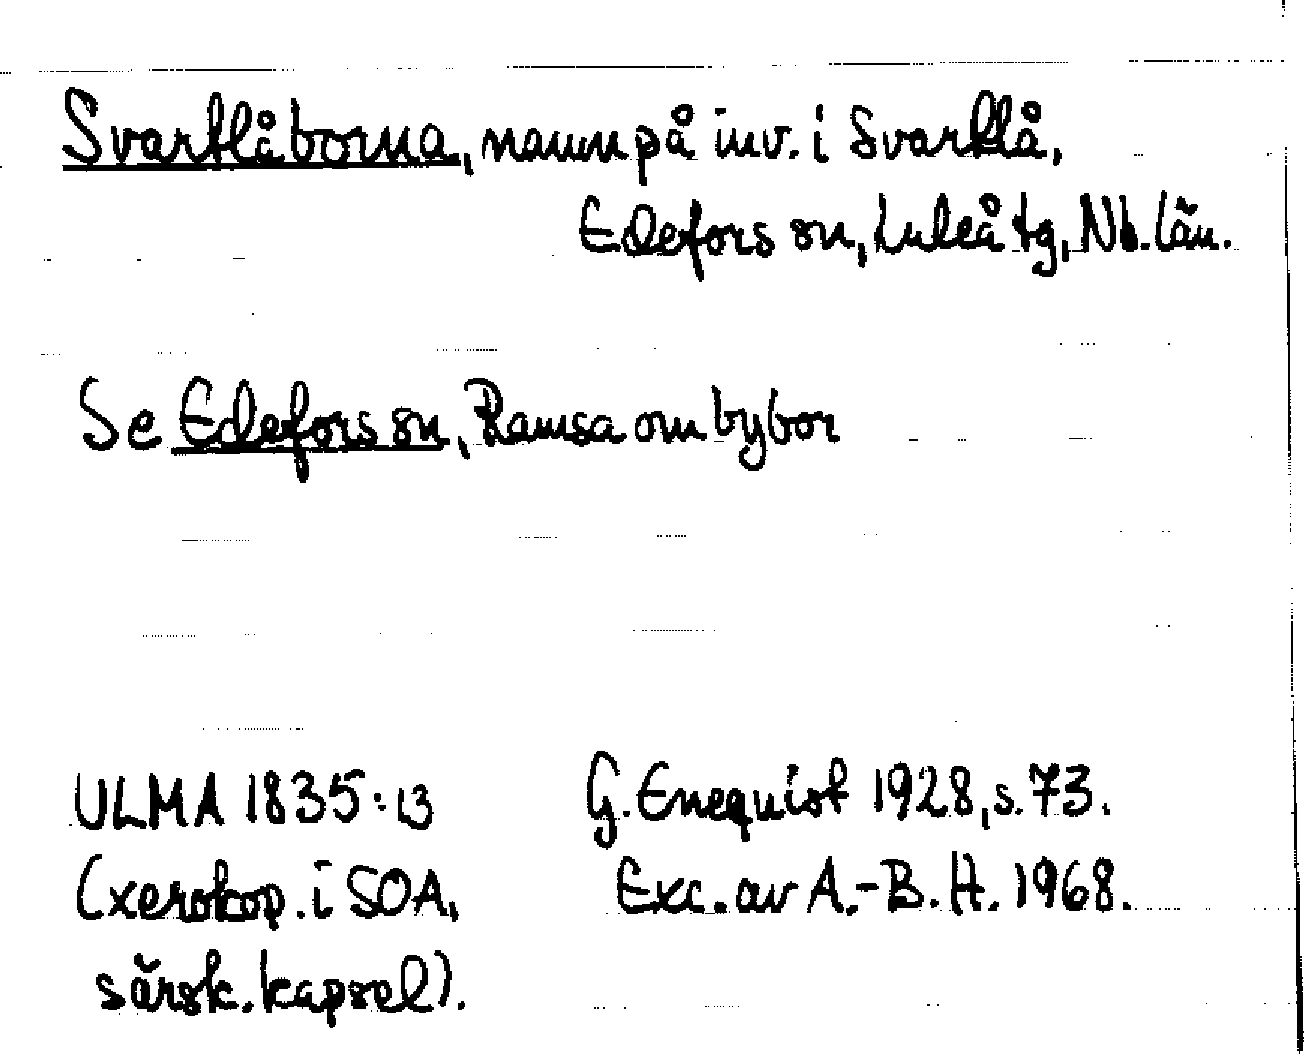 Svartlåborna, namn på inv. i Svartlå,
Edefors sn, Luleå tg, Nb. län.
Se Edefors sn, Ramsa om bybor
ULMA 1835:13
(xerokop. i SOA,
särsk. kapsel).
G. Enequist 1928, s. 73.
Exc. av A.-B. H. 1968.